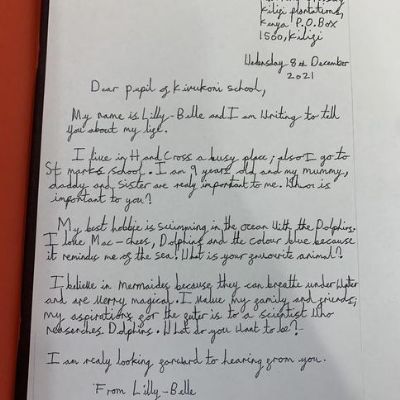 Kilifi plantations,
Kenya P.O.Box
1560, Kilifi
Wednesday 8th December
2021
Dear pupil of Kivukoni school,
My name is Lilly-Belle and I am writing to tell
you about my life.
I live in Hand Cross a busy place; also I go to
St marks school. I am 9 years old and my mummy,
daddy and sister are realy important to me. Who is
important to you?
My best hobbie is swimming in the ocean with the Dolphins.
I like Mac-chees, Dolphins and the colour blue because
it reminds me of the sea. What is your favourite animal?
I believe in Mermaides because they can breathe under water
and are very magical. I value my family and friends,
my aspirations for the futer is to a scientist who
reaserches Dolphins. What do you want to be?
I am realy looking forward to hearing from you.
From Lilly-Belle